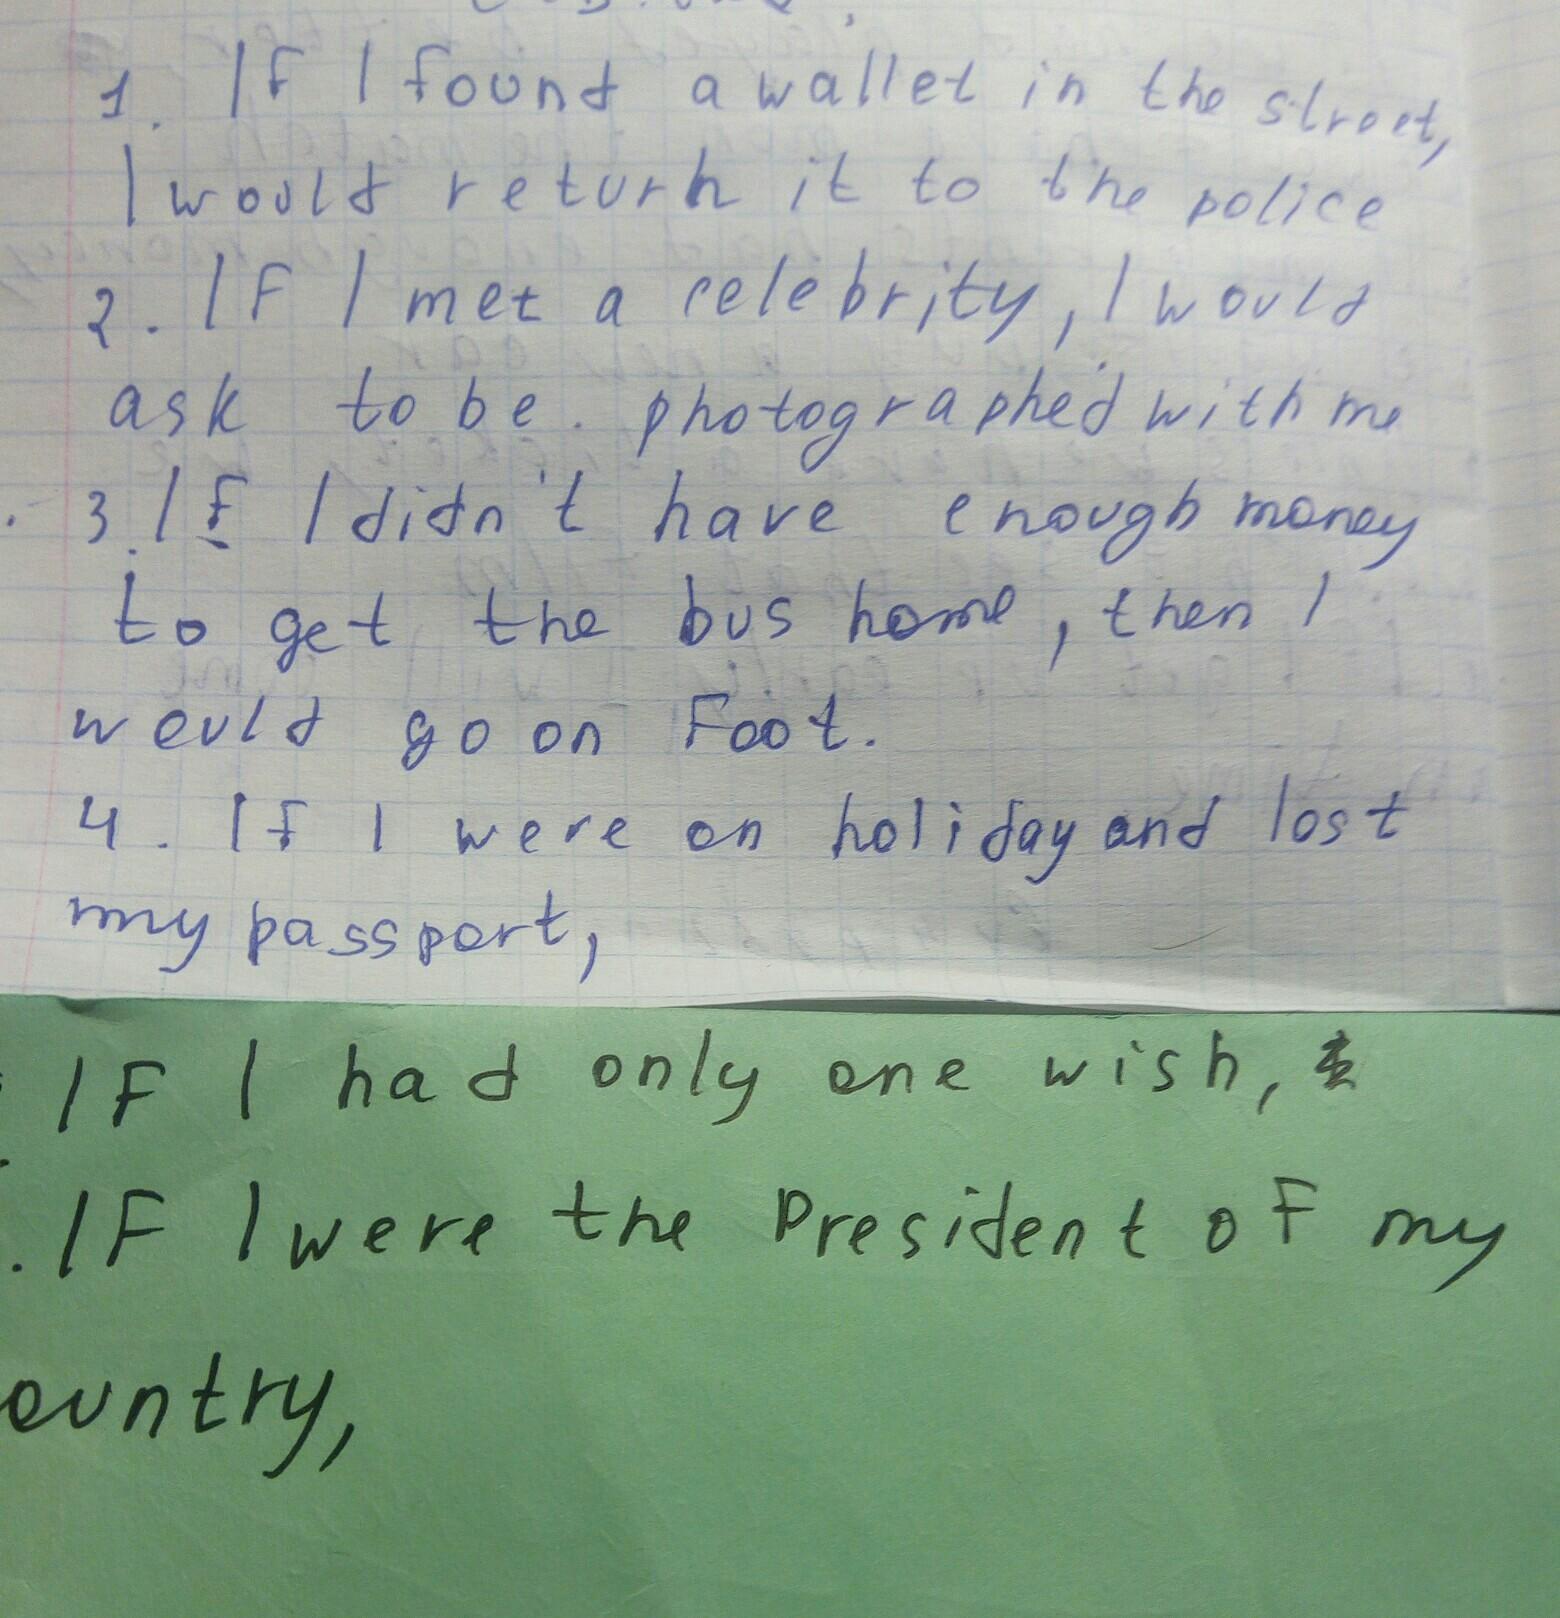 1. If I found a wallet in the street,
I would return it to the police
2. IF I met a celebrity, I would
ask to be. photographed with me
3. If I didn't have enough money
to get the bus home, then I
would go on Foot.
4. If I were on holiday and lost
my passport,
IF I had only one wish,
. IF I were the President of my
ountry,